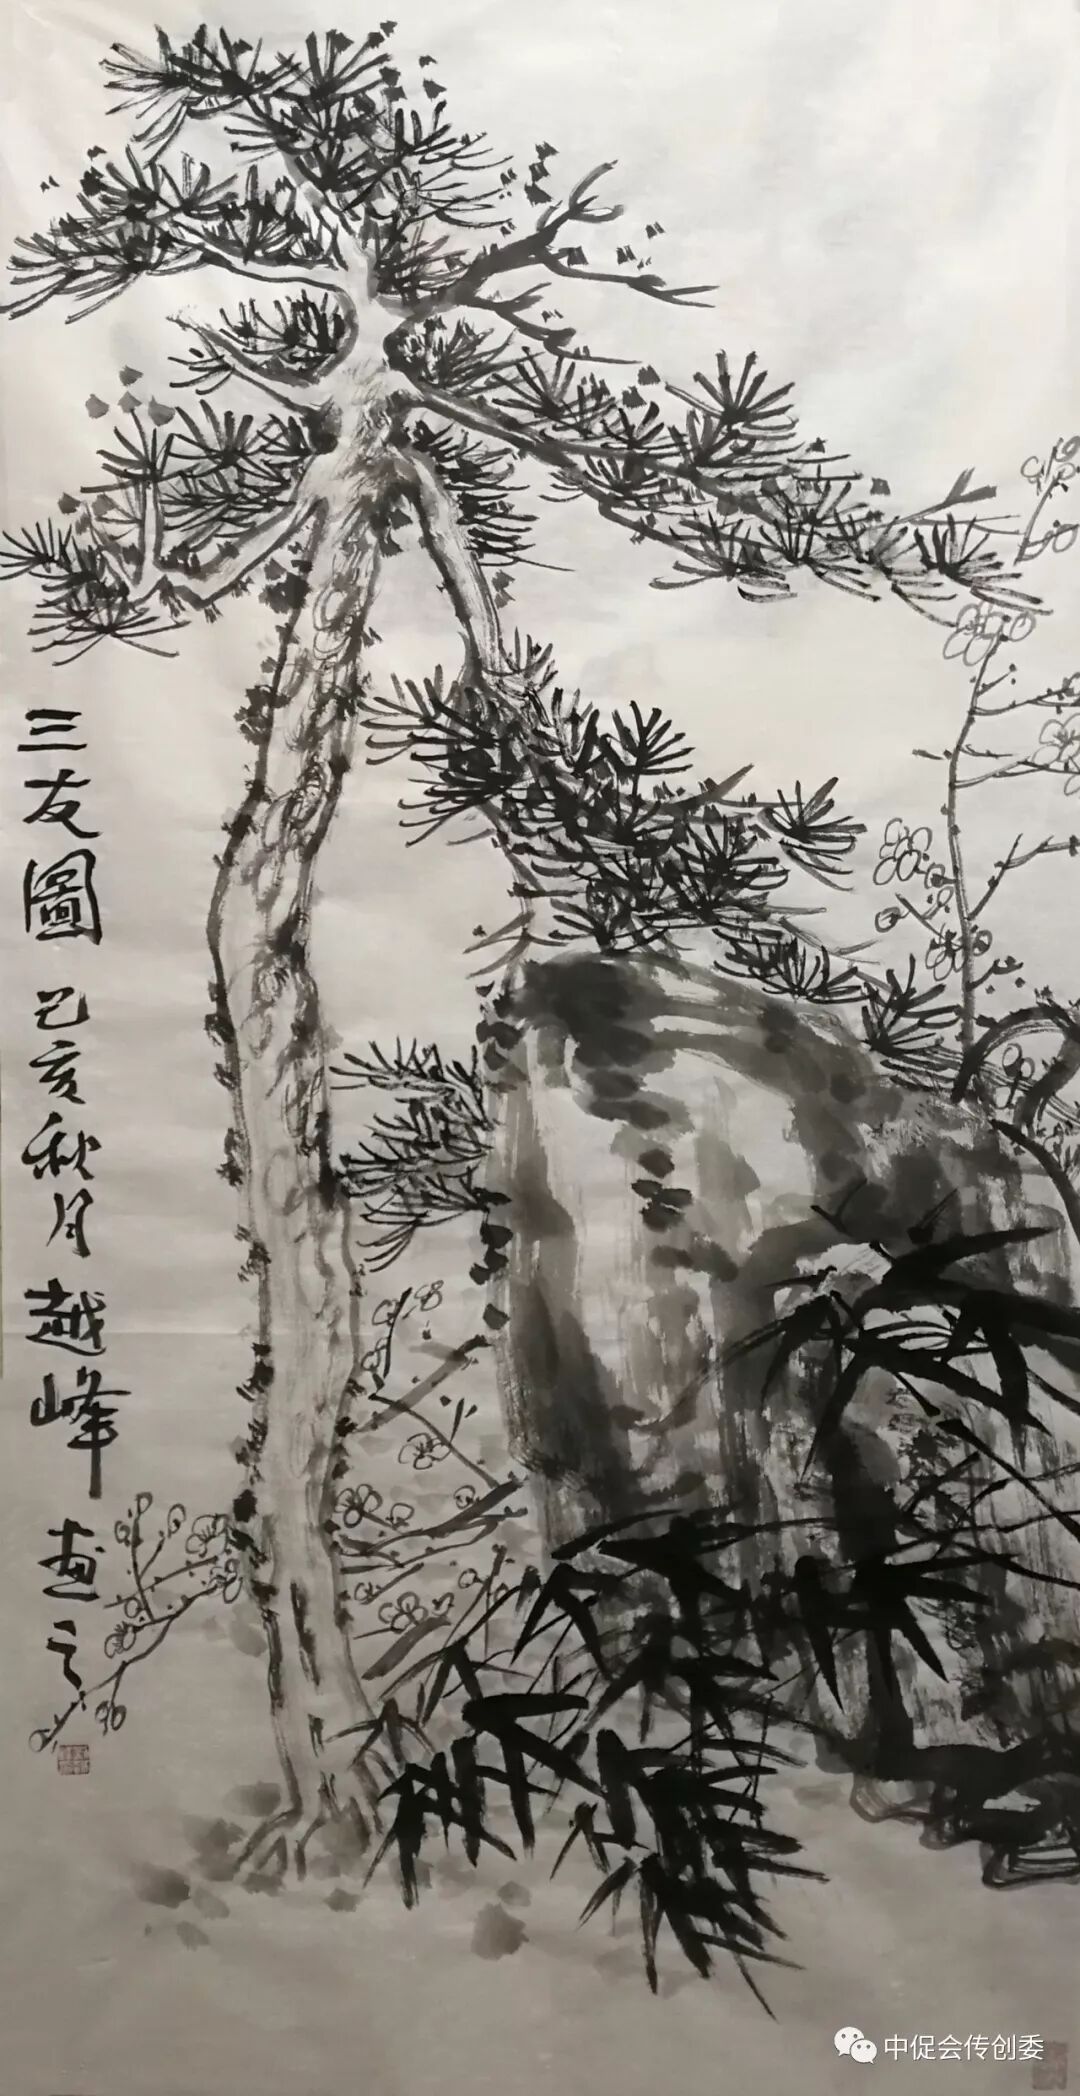 三友圖 己亥秋月越峰画之
中促会传创委